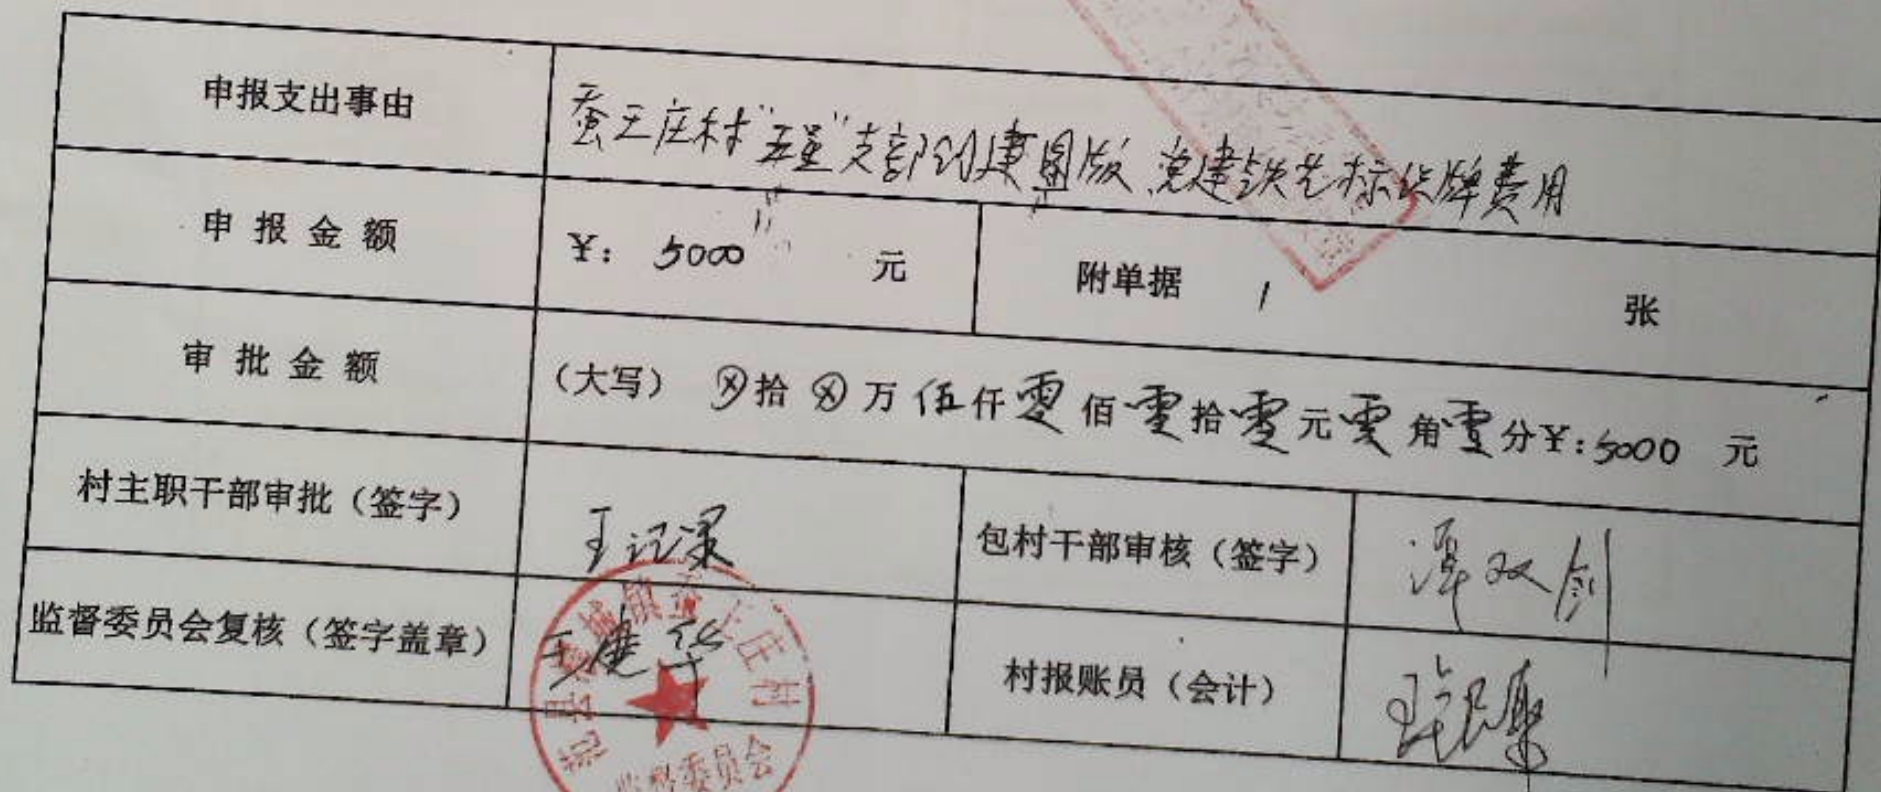 申报支出事由
蚕王庄村"五星"支部创建图版 党建铁艺标识牌费用
申报金额
¥: 5000 元
附单据 1 张
审批金额
(大写) ⊗拾⊗万伍仟零佰零拾零元零角零分¥:5000 元
村主职干部审批(签字)
王记录
包村干部审核(签字)
双剑
监督委员会复核(签字盖章)
王建华
村报账员(会计)
王庄村
监督委员会